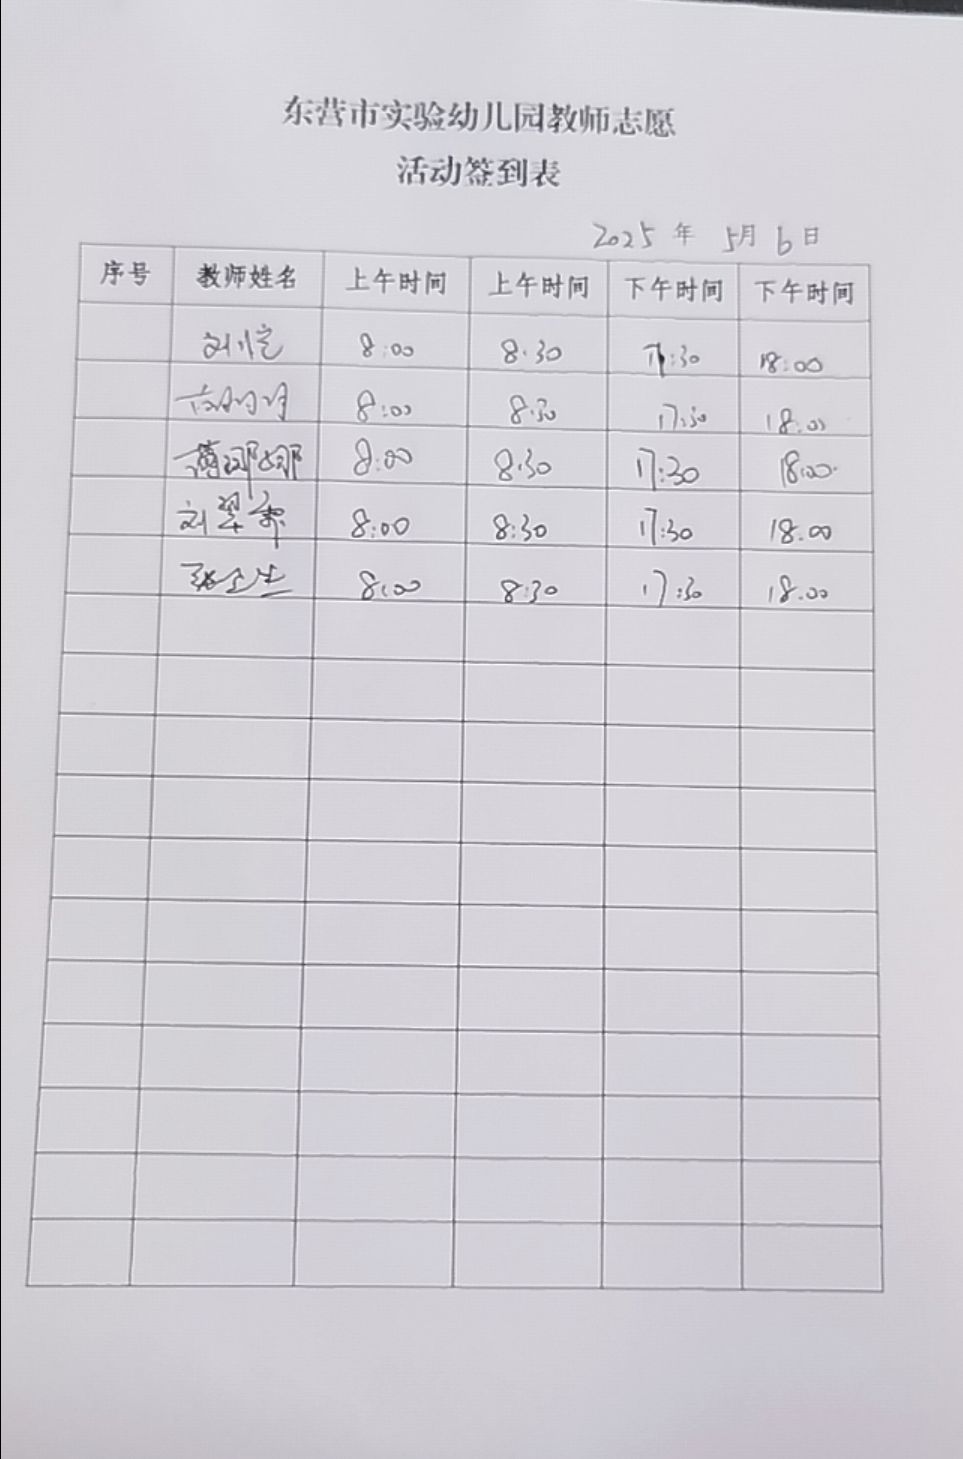 东营市实验幼儿园教师志愿
活动签到表
2025 年 5月 6日
序号 教师姓名 上午时间 上午时间 下午时间 下午时间
刘 8:00 8:30 17:30 18:00
8:00 8:30 17:30 18:00
薄娜娜 8:00 8:30 17:30 18:00
刘翠 8:00 8:30 17:30 18:00
张 8:00 8:30 17:30 18:00